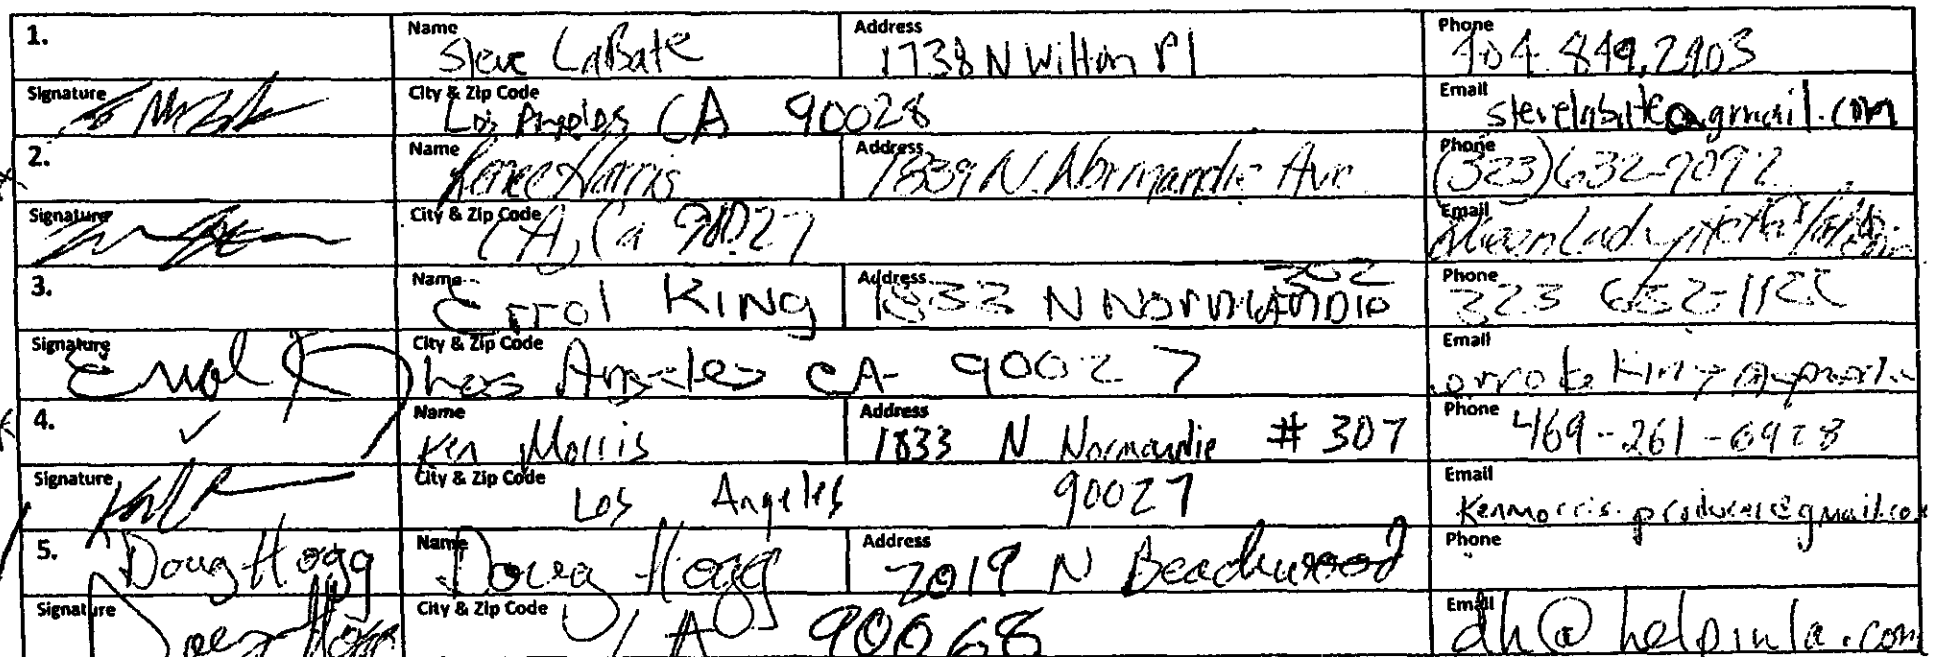 1. Name Steve LaBate Address 1738 N Wilton Pl Phone 404.849.2903
Signature City & Zip Code Los Angeles CA 90028 Email stevelabate@gmail.com
2. Name Renee Harris Address 1839 N. Normandie Ave Phone (323)632-9092
Signature City & Zip Code LA, Ca 90027 Email
3. Name Errol King Address 1833 N Normandie 302 Phone 323
Signature Errol City & Zip Code Los Angeles CA 90027 Email
4. Name Ken Morris Address 1833 N Normandie # 307 Phone 469-261-6928
Signature City & Zip Code Los Angeles 90027 Email Kenmorris.producer@gmail.com
5. Doug Hogg Name Doug Hogg Address 2019 N Beachwood Phone
Signature Doug Hogg City & Zip Code LA 90068 Email dh@helpinla.com